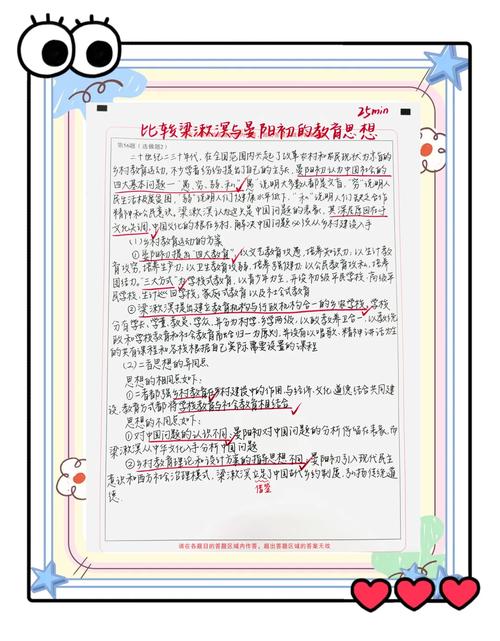 25min
比较梁漱溟与晏阳初的教育思想
第56题(选做题2)
二十世纪二三十年代,在全国范围内兴起了改革农村和农民现状为宗旨的
乡村教育运动,不少学者纷纷提出了自己的主张,晏阳初认为中国社会的
四大基本问题—"愚、穷、弱、私","愚"说明大多数人都是文盲,"穷"说明人
民生活极度贫困,"弱"说明人们的健康水平低下,"私"说明人们缺乏合作
精神和公民意识。梁漱溟认为这只是中国问题的表象,其深层原因在于
文化失调,中国文化的根在乡村,解决中国问题必须从乡村建设入手
(一)乡村教育运动的方案
①晏阳初提出"四大教育",以文艺教育攻愚,培养知识力,以生计教
育攻穷,培养生产力,以卫生教育攻弱,培养强健力,以公民教育攻私,培养
团结力。"三大方式"为学校式教育,以青少年为主,并设初级平民学校,高级平
民学校,生计巡回学校,家庭式教育以及社会式教育
②梁漱溟提出建立教育机构与行政机构合一的乡农学校,学校
分有学长、学董、教员、学众,并分为村学、乡学两级,以政教养卫合一,以教统
政和学校教育和社会教育融合归一为原则,并设有以唱歌、精神讲话为主
的共有课程和各校根据自己实际需要设置的课程
(二)二者思想的异同点
思想的相同点如下:
①二者都强调乡村教育在乡村建设中的作用,与经济、文化、道德结合共同建
设,教育方式都将学校教育与社会教育相结合
思想的不同点如下:
①对中国问题的认识不同,晏阳初对中国问题的分析停留在表象,而
梁漱溟从中华文化入手分析中国问题
②乡村教育理论和设计方案的指导思想不同,晏阳初引入现代民主
意识和西方社会治理模式,梁漱溟立足于中国古代乡约制度,弘扬传统道
德。
借鉴
请在各题目的答题区域内作答,超出答题区域的答案无效